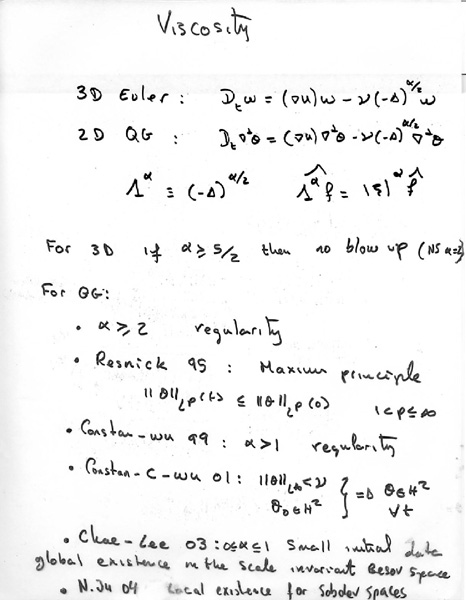 Viscosity
3D Euler : D_t ω = (∇u)ω − ν(−Δ)^{α/2} ω
2D QG : D_t ∇^⊥θ = (∇u)∇^⊥θ − ν(−Δ)^{α/2} ∇^⊥θ
Λ^α ≡ (−Δ)^{α/2} \widehat{Λ^α f} = |ξ|^α \hat{f}
For 3D if α ⩾ 5/2 then no blow up (NS α=2)
For QG:
• α ⩾ 2 regularity
• Resnick 95 : Maximum principle
||θ||_{L^p}(t) ≤ ||θ||_{L^p}(0) 1<p≤∞
• Constan-Wu 99 : α>1 regularity
• Constan-C-Wu 01 : ||θ||_{L^∞}<ν
θ_0 ∈ H^2 } ⇒ θ ∈ H^2 ∀t
• Chae-Lee 03 : 0≤α≤1 Small initial data
global existence in the scale invariant Besov space
• N. Ju 04 Local existence for Sobolev spaces